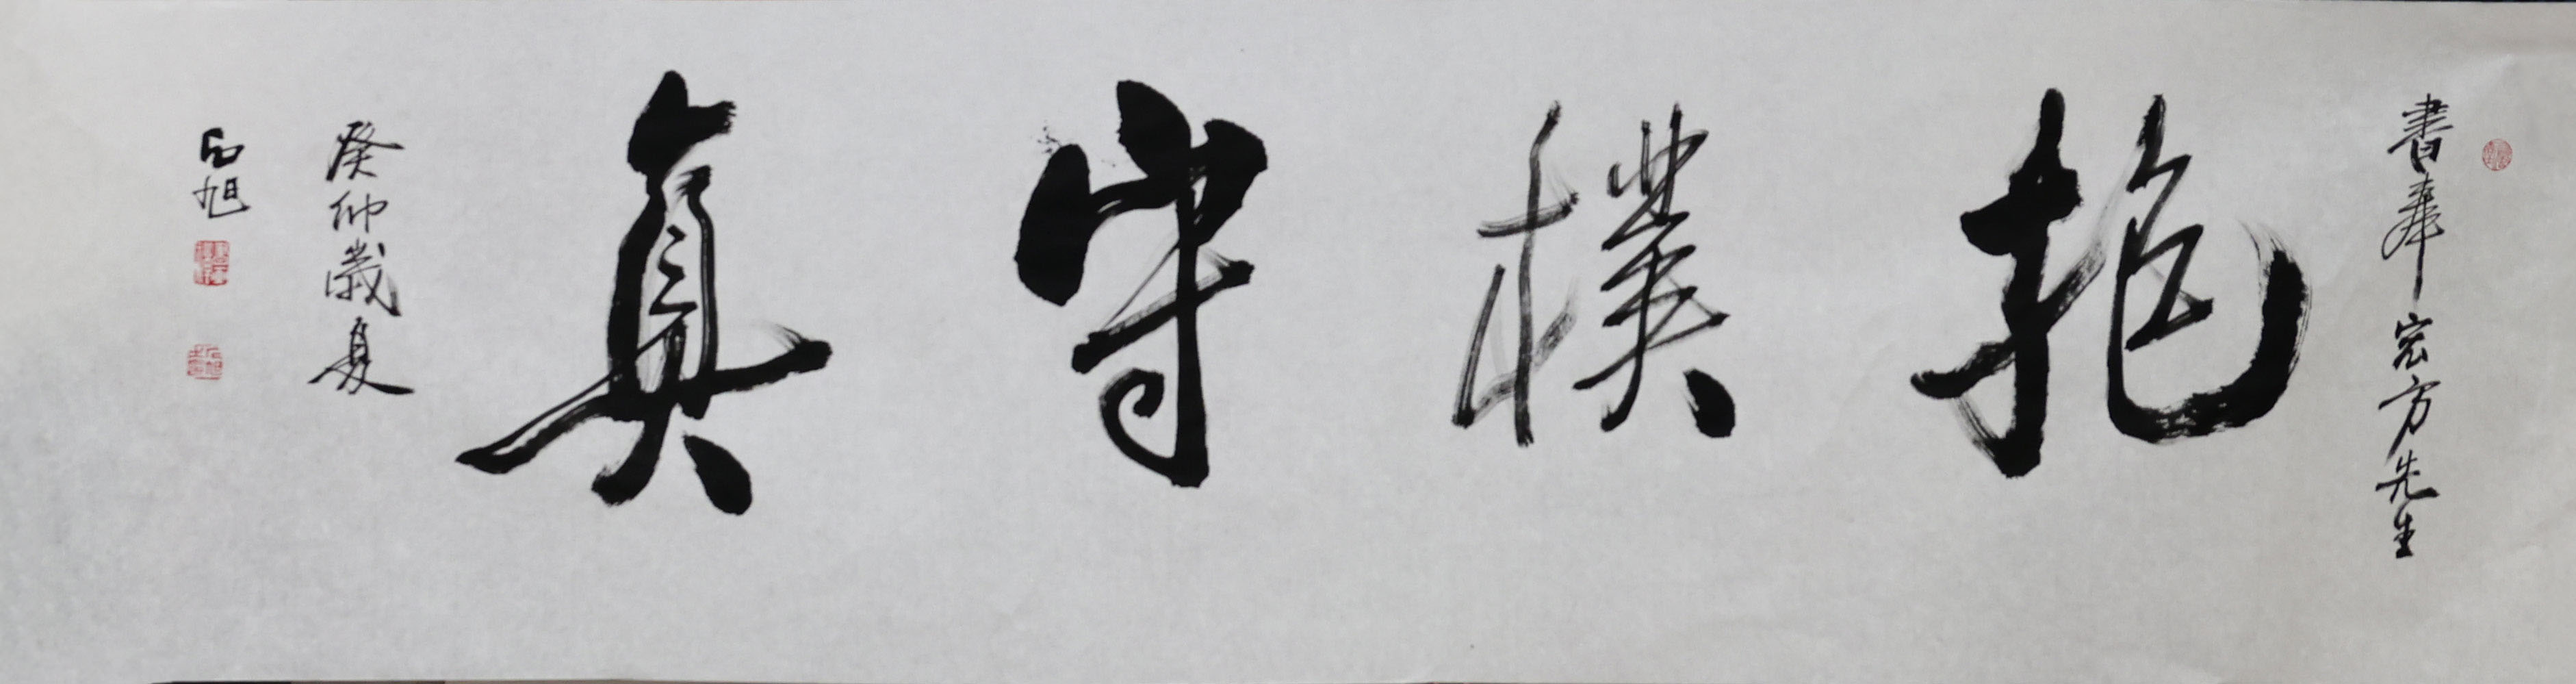 書奉宏方先生
抱樸守真
癸卯歲夏
旭